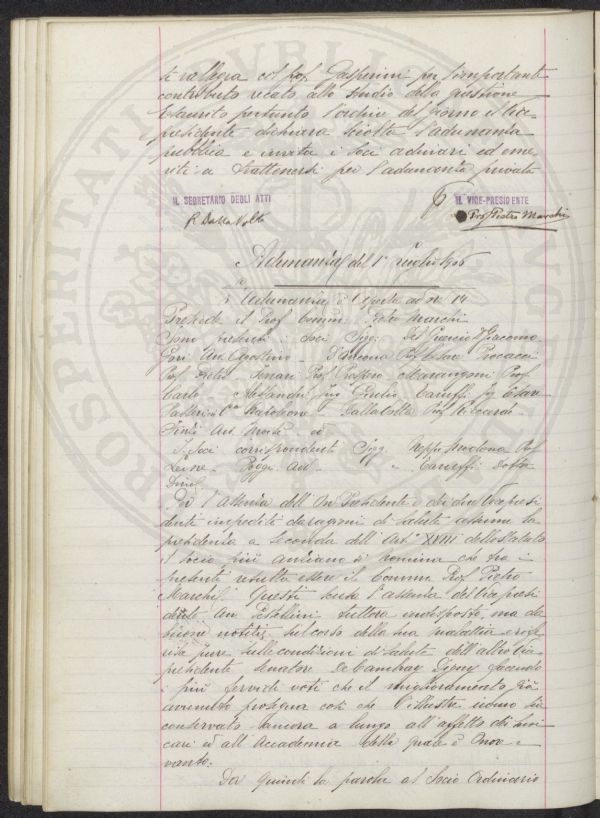 si rallegra col Prof Gasperini per l'importante
contributo recato allo studio della questione
Esaurito pertanto l'ordine del giorno il Vice-
presidente dichiara sciolta l'adunanza
pubblica e invita i soci ordinari ed eme
riti a trattenersi per l'adunanza privata
IL SEGRETARIO DEGLI ATTI
IL VICE-PRESIDENTE
R. Dalla Volta
Prof Pietro Marchi
Adunanza del 1° luglio 1906
L'adunanza è aperta ad ore 14
Presiede il Prof Comm Pietro Marchi
Sono presenti i soci Sigg. Del Guercio Giacomo
Gori Avv. Agostino D'Ancona Prof Cesare Procacci
Prof Pietro Ferrari Prof Prospero Marangoni Prof
Carlo Alessandri Ing Giulio Taruffi Ing Cesare
Marchese Dalla Volta Prof Riccardo
I soci corrispondenti Sigg. Modona Prof
Leone Poggi Avv. Taruffi Dottor
Per l'assenza dell'On Presidente e dei due Vicepresi
denti impediti da ragioni di salute assume la
presidenza a seconda dell'Art° XVIII dello statuto
il socio più anziano di nomina che fra i
presenti risulta essere il Comm Prof Pietro
Marchi. Questi scusa l'assenza del Vicepresi
dente Avv Pestellini tuttora indisposto, ma dà
buone notizie sul corso della sua malattia
pure sulle condizioni di salute dell'altro Vice
presidente Senatore De Cambray Digny facendo
i più fervidi voti che il miglioramento già
avvenuto prosegua così che l'illustre uomo sia
conservato ancora a lungo all'affetto dei suoi
cari ed all'Accademia della quale è onore e
vanto.
Dà quindi la parola al Socio Ordinario